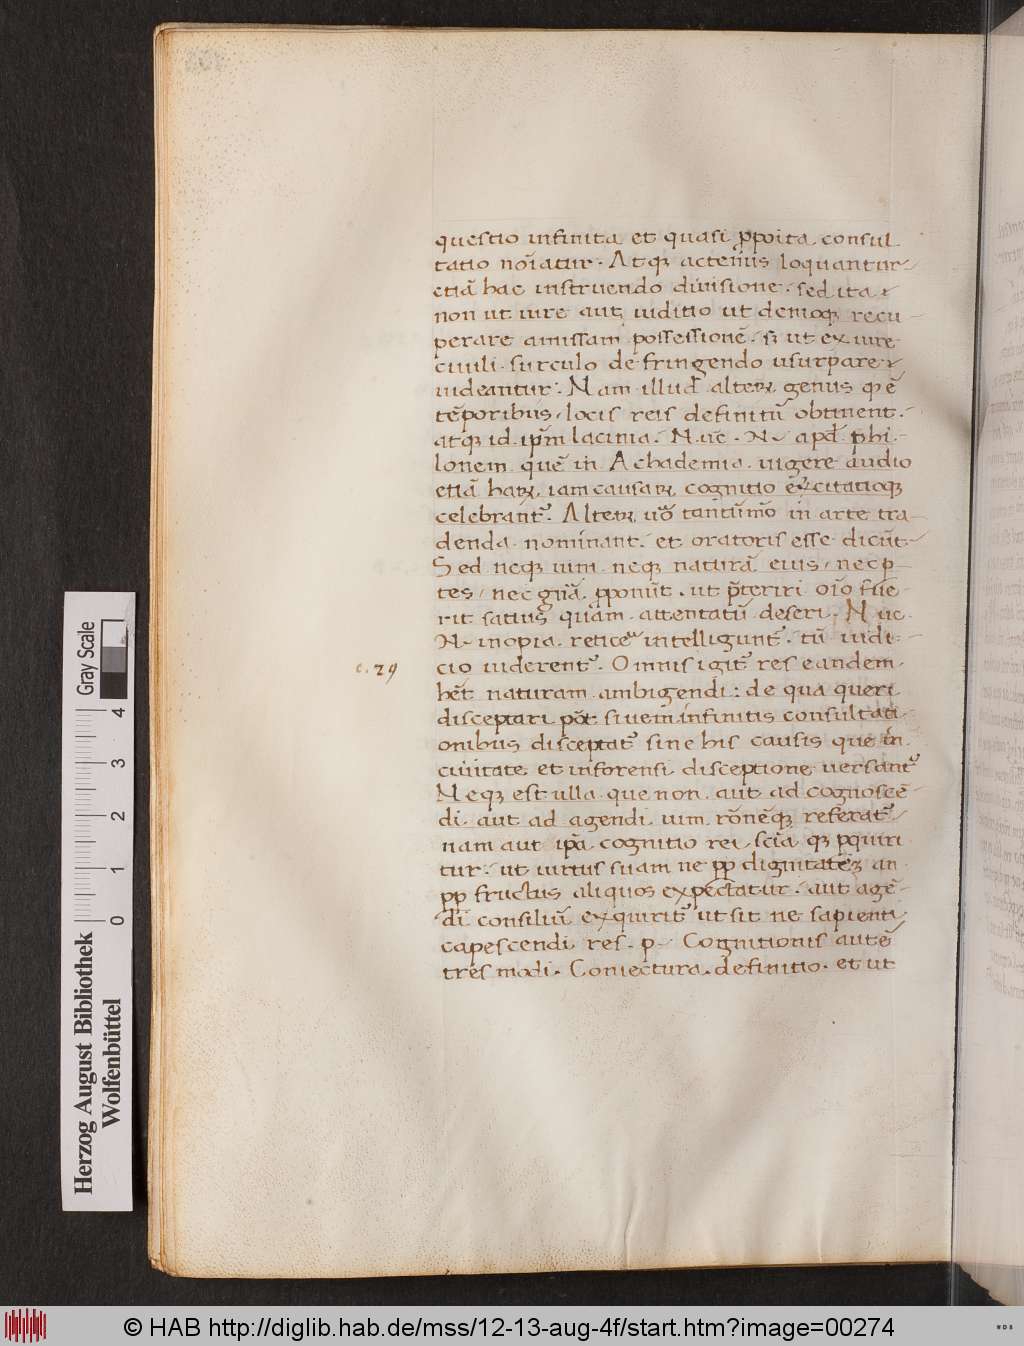 questio infinita et quasi p̄poita consul
tatio noīatur. Atqꝫ actenus loquantur
etiā hac instruendo diuisione. sed ita
non ut iure aut iuditio ut deniqꝫ recu
perare amissam possessionē. s; ut ex iure
ciuili. surculo defringendo usurpare
uideantur. Nam illud alterꝝ genus qḋ ē
tēporibus, locis reis definitū obtinent.
atqꝫ id ip̄m lacinia. Nuc. N. apḋ phi
lonem quē in Achademia uigere audio
etiā harꝝ iam causarꝝ cognitio exercitatioqꝫ
celebrant᷑. Alterꝝ uō tantūmō in arte tra
denda nominant. et oratoris esse dicūt
Sed neqꝫ uim neqꝫ naturā eius, nec ꝑ
tes, nec gn̄a. ꝓponūt. ut p̄teriri oīo fue
rit satius quam attentatū deseri. Nuc.
N. inopia reticere intelligunt᷑. tū iudi
cio uiderent᷑. Omnis igit᷑ res eandem
hēt naturam ambigendi: de qua queri
disceptari pōt siue in infinitis consultati
onibus disceptat᷑ siue his causis que in
ciuitate et in forensi disceptione uersant᷑
Neqꝫ est ulla que non aut ad cognoscē
di aut ad agendi uim rōnēqꝫ referat᷑
nam aut ip̄a cognitio rei sciā qꝫ pquiri
tur. ut uirtus suam ne pp dignitatē an
pp fructus aliquos expectatur. aut agē
di consiliū exquirit᷑ ut sit ne sapienti
capescendi res. p. Cognitionis autē
c. 29
tres modi. Coniectura. definitio. et ut
Herzog August Bibliothek
Wolfenbüttel
Gray Scale
0 1 2 3 4
© HAB http://diglib.hab.de/mss/12-13-aug-4f/start.htm?image=00274